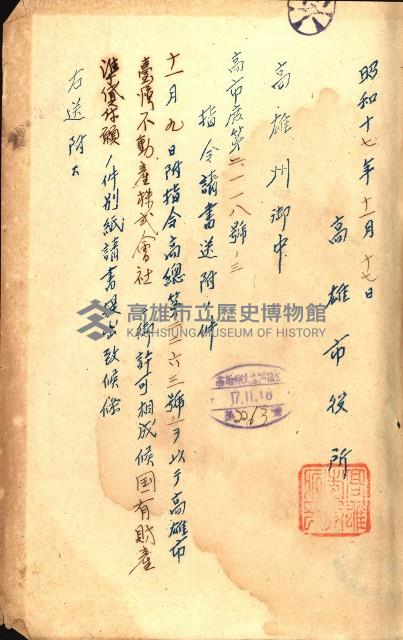 昭和十七年十一月十七日
高雄市役所
高雄州御中
高市庶第二一一八號ノ三
指令請書送附ノ件
十一月九日附指令高總第二〇六三號ニヲ以テ高雄市
臺灣不動產株式會社 御許可相成候国有財産
準貸付願ノ件別紙請書提出致候條
右送附ス
17.11.18
高雄市立歷史博物館
KAOHSIUNG MUSEUM OF HISTORY